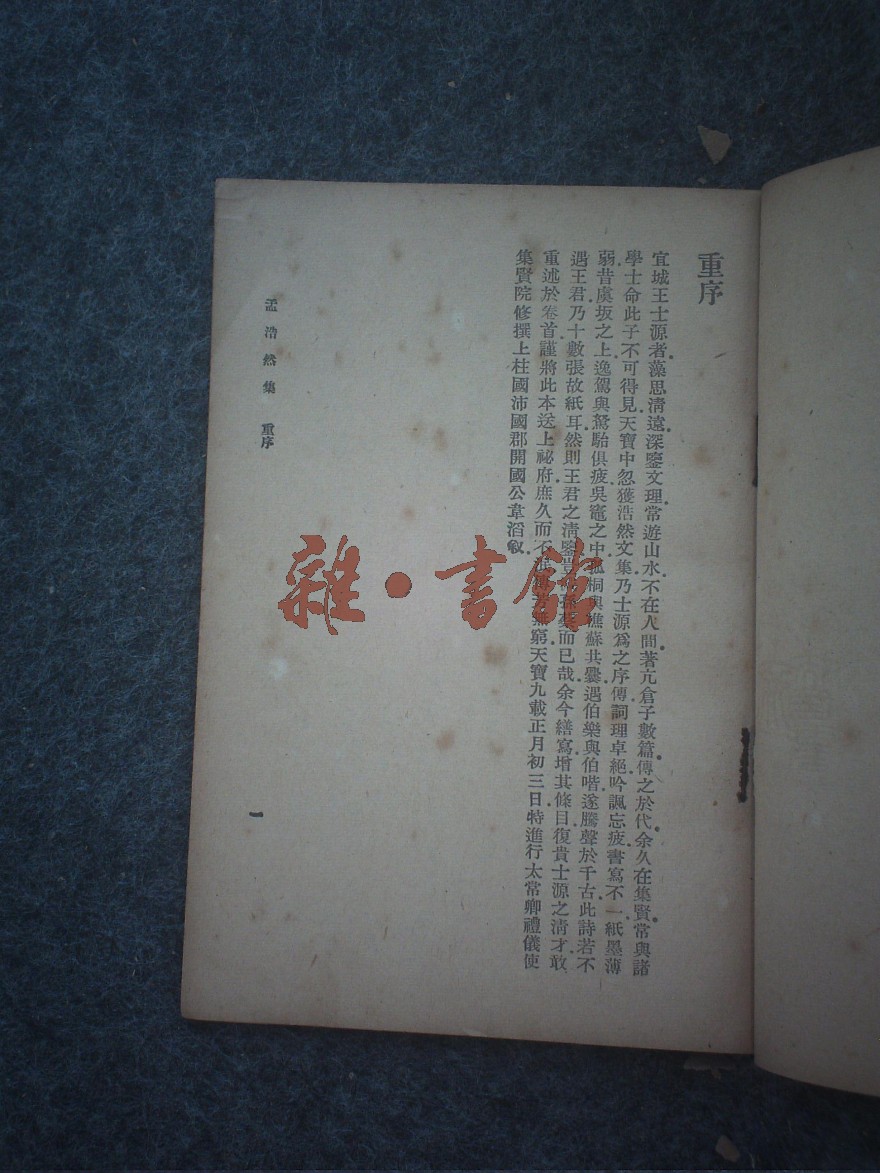 重序
宜城王士源者藻思清遠深鑒文理常遊山水不在人間著亢倉子數篇傳之於代余久在集賢常與諸
學士命此子不可得見天寶中忽獲浩然文集乃士源爲之序傳詞理卓絕吟諷忘疲書寫不一紙墨薄
弱昔虞坂之上逸駕與駑駘俱疲吳竈之中孤桐與樵蘇共爨遇伯樂與伯喈遂騰聲於千古此詩若不
遇王君乃十數張故紙耳然則王君之清鑒豈而已哉余今繕寫增其條目復貴士源之清才敢
重述於卷首謹將此本送上祕府庶久而不窮天寶九載正月初三日特進行太常卿禮儀使
集賢院修撰上柱國沛國郡開國公韋滔敘
孟浩然集 重序
一
雜·書館